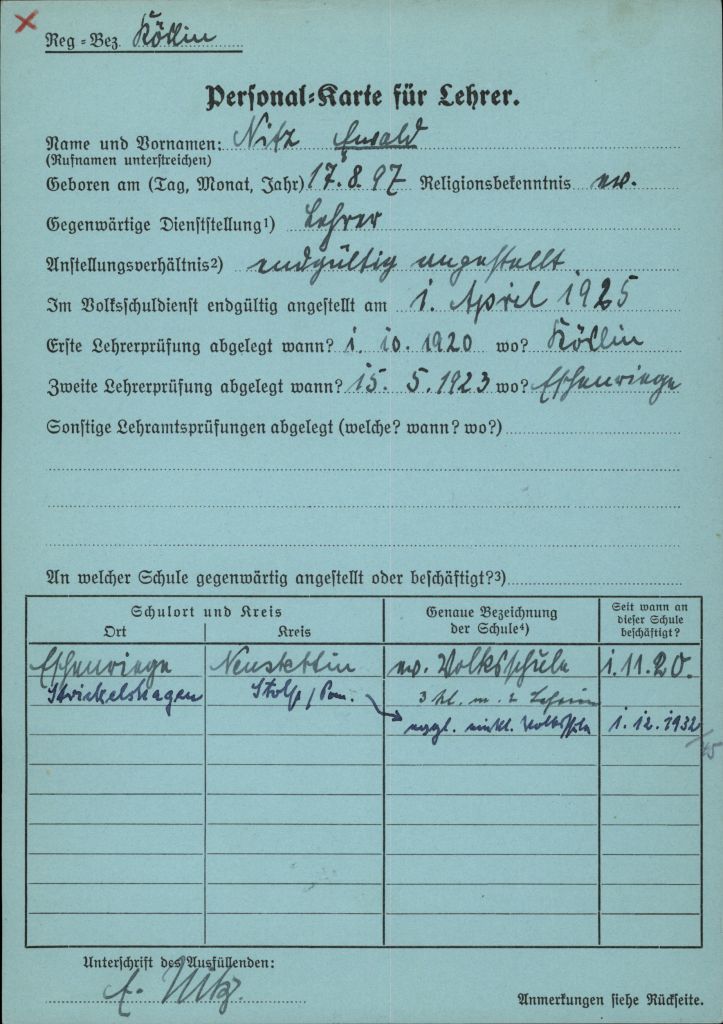 Reg-Bez. Köslin
Personal-Karte für Lehrer.
Name und Vornamen: Nitz Ewald
(Rufnamen unterstreichen)
Geboren am (Tag, Monat, Jahr) 17.8.97 Religionsbekenntnis ev.
Gegenwärtige Dienststellung¹) Lehrer
Anstellungsverhältnis²) endgültig angestellt
Im Volksschuldienst endgültig angestellt am 1. April 1925
Erste Lehrerprüfung abgelegt wann? 1. 10. 1920 wo? Köslin
Zweite Lehrerprüfung abgelegt wann? 15. 5. 1923 wo? Eschenriege
Sonstige Lehramtsprüfungen abgelegt (welche? wann? wo?)
An welcher Schule gegenwärtig angestellt oder beschäftigt?³)
Schulort und Kreis
Ort Kreis
Genaue Bezeichnung der Schule⁴)
Seit wann an dieser Schule beschäftigt?
Eschenriege Neustettin ev. Volksschule 1.11.20.
Strickershagen Stolp / Pom. 3 kl. m. 2
evgl. einkl. Volksschule 1.12.1932
Unterschrift des Ausfüllenden:
E. Nitz.
Anmerkungen siehe Rückseite.